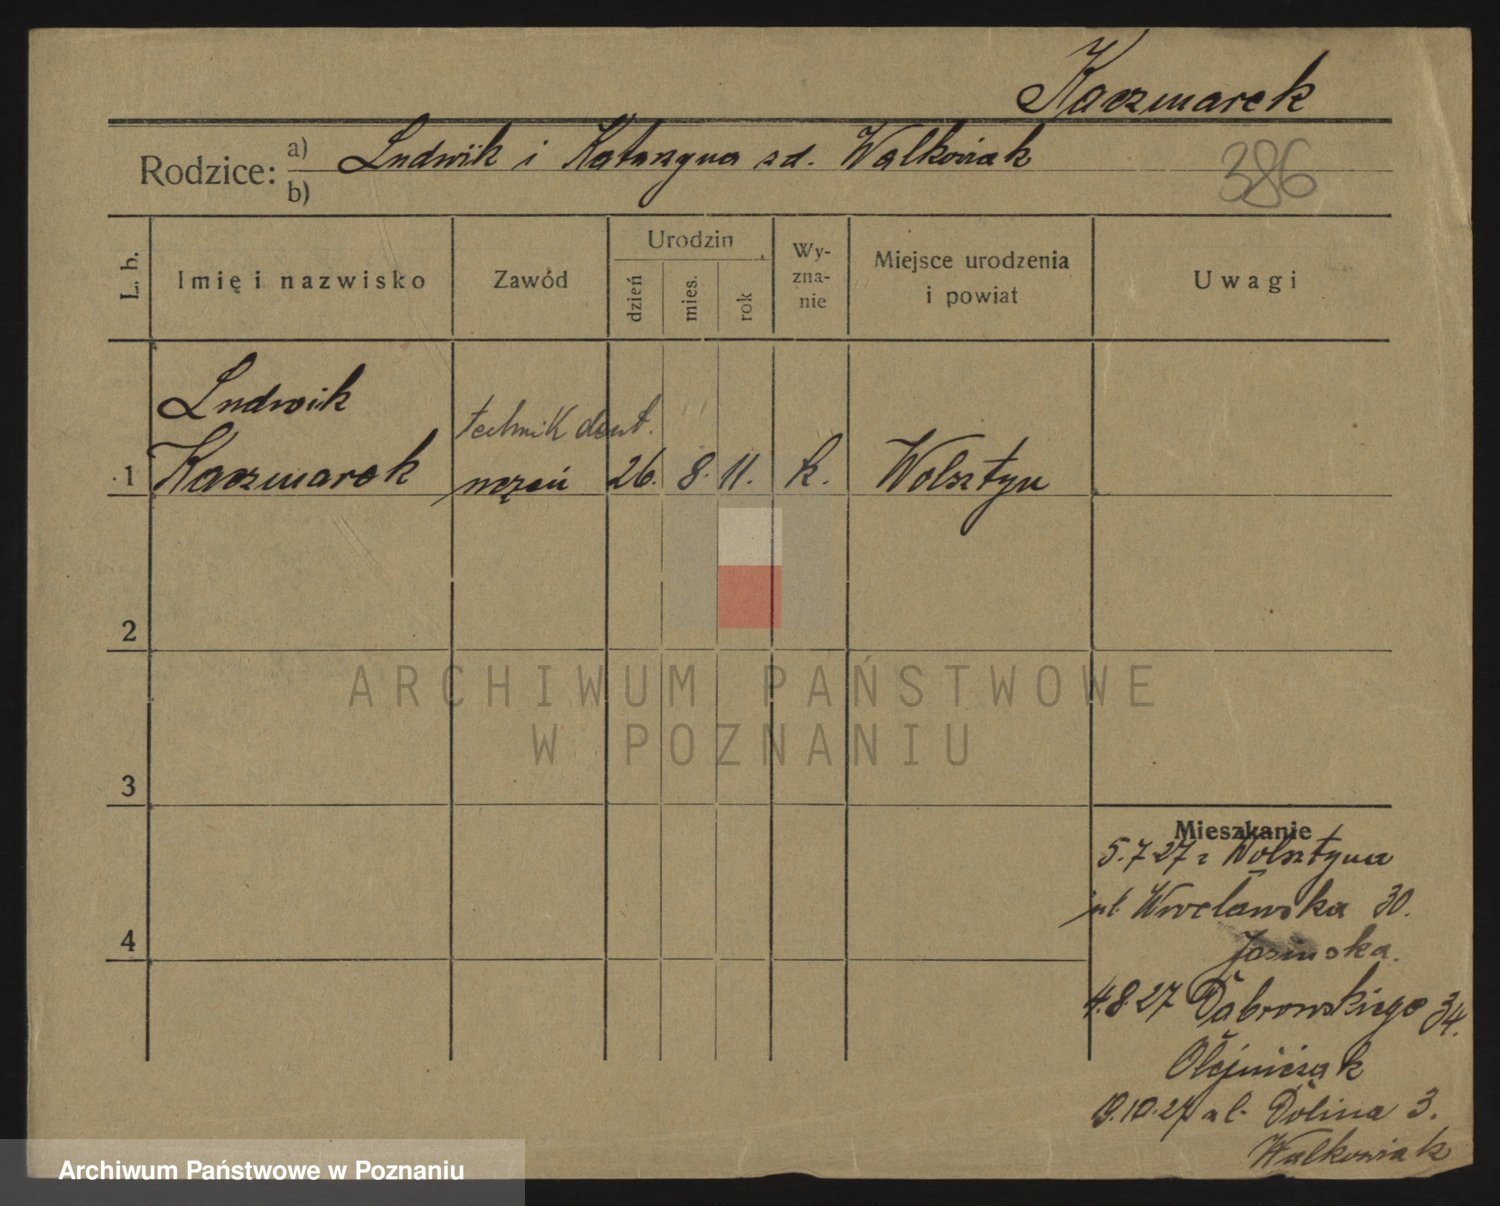 Kaczmarek
Rodzice: a) Ludwik i Katarzyna zd. Walkowiak
b)
386
L. b.
Imię i nazwisko
Zawód
Urodzin
dzień
mies.
rok
Wy-
zna-
nie
Miejsce urodzenia
i powiat
Uwagi
Ludwik
technik dent.
1 Kaczmarek uczeń 26. 8. 11. k. Wolsztyn
2
ARCHIWUM PAŃSTWOWE
W POZNANIU
3
Mieszkanie
5.7.27 z Wolsztyna
ul. Wrocławska 30.
Jasińska.
4
4.8.27 Dąbrowskiego 34.
Olejniczak
19.10.27 ul. Dolina 3.
Walkowiak
Archiwum Państwowe w Poznaniu